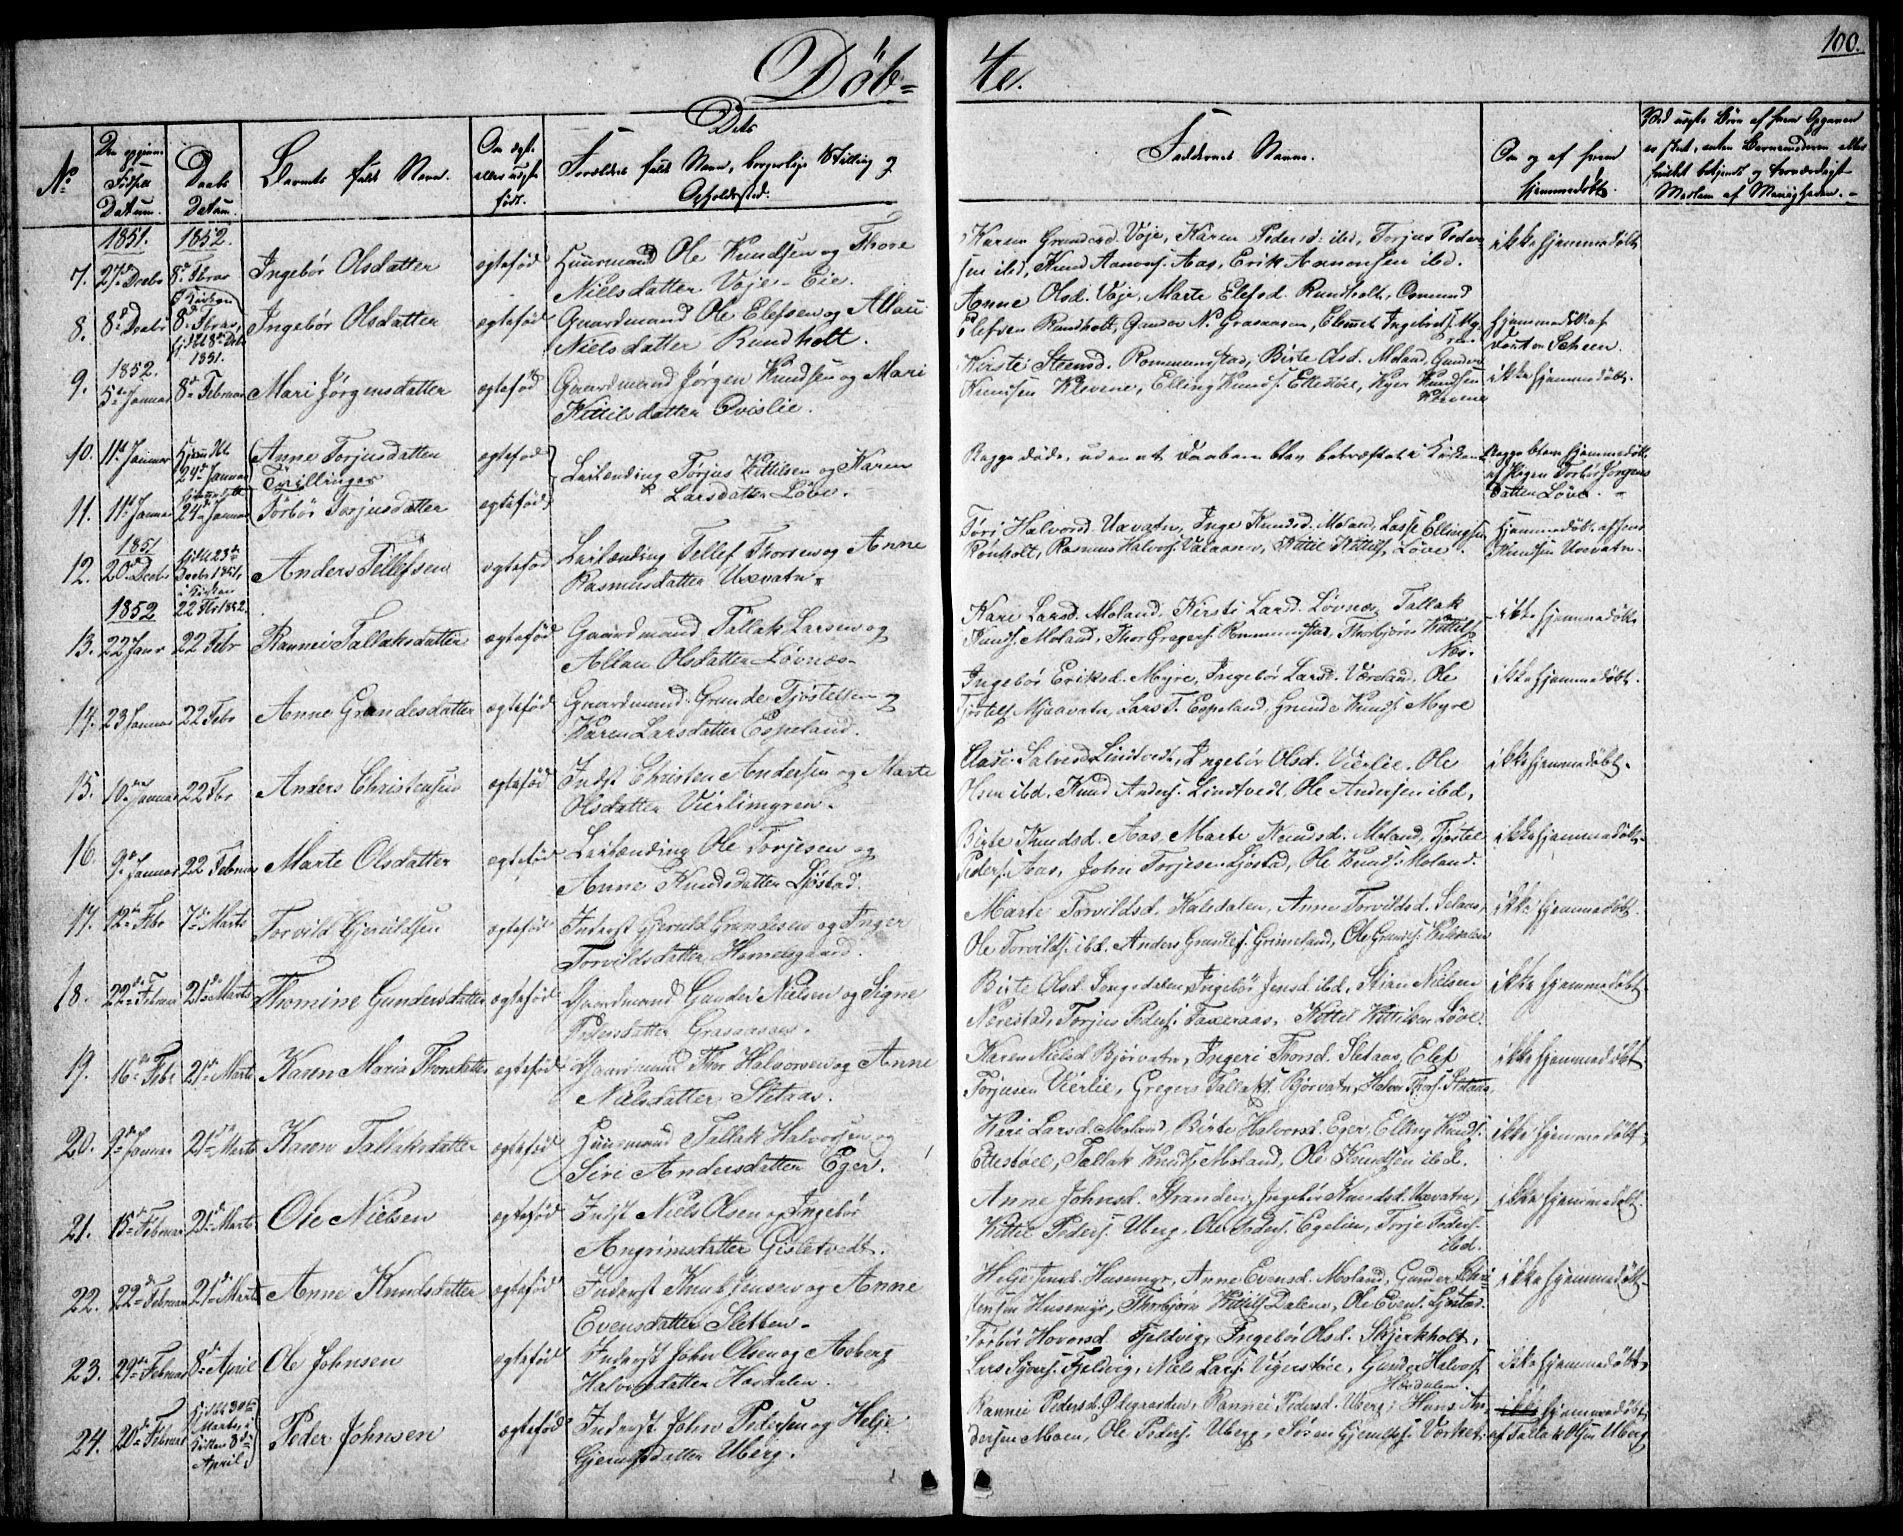 Døb=
te.
100.
Dets
No
Datum.
Daabs
Datum.
Barnets fulde Navn.
Om ægte
eller uægte
født.
Forældres fulde Navn, borgerlige Stilling og
Opholdssted.
Faddernes Navne.
Om og af hvem
hjemmedøbt.
1851. 1852.
7. 27de Decbr 8de Febr Ingebør Olsdatter ægtefød Huusmand Ole Knudsen og Thore
Nielsdatter Voje-Eie.
Karen Voje, Karen Pedersd: ibd, Torjus Peder
sen ibd, Knud Aanons. Aas, Erik Aanonsen ibd.
ikke hjemmedøbt
8. 8de Decbr 8de Febr Ingebør Olsdatter ægtefød Gaardmand Ole Elefsen og Allau
1851.
Nielsdatter Rundholt.
Anne Olsd. Voje, Marte Elefsd. Rundholt, Osmund
Elefsen Rundholt, Gunder N. Grasaasen, Clemet
hjemmedøbt af
1852.
9. 5te Januar 8de Februar Mari Jørgensdatter ægtefød Gaardmand Jørgen Knudsen og Mari
Kittilsdatter Qvislie.
Kirsti Steensd. Rommunstad, Birte Olsd. Moland, Gunder
Knudsen Klevene, Elling Knuds. Ettestøl, Knudsen
Klevene
ikke hjemmedøbt.
10. 11te Januar 24de Januar Anne Torjusdatter ægtefød
Tvillinger
Leilænding Torjus Kittilsen og Karen
Larsdatter Løve.
Begge døde, uden at Daaben blev bekræftet i Kirken
Begge bleve hjemmedøbt
af Pigen Torbør Jørgens
datter Løve.
11. 11te Januar 24de Januar Torbør Torjusdatter ægtefød
1851
12. 20de Decbr
Decbr 1851,
i Kirken
22 Febr 1852.
Anders Tellefsen ægtefød Leilænding Tellef Thorsen og Anne
Rasmusdatter Uxvatn.
Tøri Halvorsd. Uxvatn, Inge Knudsd. Moland, Lasse Ellingsen
Rønholt, Rasmus Halvors. Valaasen, Kittil Kittils. Løve.
hjemmedøbt af Jens
Knudsen Uxvatn.
1852
13. 22 Janr 22 Febr Rannei Tallaksdatter ægtefød Gaardmand Tallak Larsen og
Allau Olsdatter Løvnæs.
Kari Larsd. Moland, Kirsti Larsd. Løvnæs, Tallak
Knuds. Moland, Thor Gregers. Rommunstad, Thorbjørn Kittils.
Næs.
ikke hjemmedøbt
14. 23 Januar 22 Febr Anne Grundesdatter ægtefød Gaardmand Grunde Tjøstelsen og
Karen Larsdatter Espeland.
Ingebør Eriksd. Myre, Ingebør Larsd. Værland, Ole
Tjøstels. Mjaavatn, Lars T. Espeland, Grunde Knuds. Myre
ikke hjemmedøbt.
15. 10de Januar 22 Febr Anders Christensen ægtefød Inderst Christen Andersen og Marte
Olsdatter Vierlimyren.
Aase Salvesd. Lindtvedt, Ingebør Olsd. Vierlie, Ole
Olsen ibd. Knud Anders. Lindtvedt, Ole Andersen ibd,
ikke hjemmedøbt.
16. 9de Januar 22 Februar Marte Olsdatter ægtefød Leilænding Ole Torjesen og
Anne Knudsdatter Ljøstad.
Birte Knudsd. Aas, Marte Knudsd. Moland, Tjøstel
Peders. Aas, John Torjesen Ljøstad, Ole Knuds. Moland.
ikke hjemmedøbt.
17. 12te Febr 7de Marts Torvild Gjeruldsen ægtefød Inderst Gjeruld Grundesen og Inger
Torvildsdatter Hommelsgaard.
Marte Torvildsd. Kalsdalen, Anne Torvildsd. Selaas,
Ole Torvilds. ibd. Anders Grundes. Grimeland, Ole Grundes.
ikke hjemmedøbt.
18. 22de Februar 21de Marts Thomine Gundersdatter ægtefød Gaardmand Gunder Nielsen og Signe
Pedersdatter Grasaasen.
Birte Olsd. Songedalen, Ingebør Jensd. ibd, Stian Nielsen
Nerestad, Torjus Peders. Faxeraas, Kittel Kittilsen Løve.
ikke hjemmedøbt
19. 16de Febr 21de Marts Karen Maria Thorsdatter ægtefød Gaardmand Thor Halvorsen og Anne
Nielsdatter Sletaas.
Karen Nielsd. Bjørvatn, Ingeri Thorsd. Sletaas, Elef
Torjusen Vierlie, Gregers Tallaks. Bjorvatn, Halvor Thors. Sletaas,
ikke hjemmedøbt
20. 9de Januar 21de Marts Karen Tallaksdatter ægtefød Huusmand Tallak Halvorsen og
Siri Andersdatter Eger.
Kari Larsd. Moland, Birte Halvorsd. Eger, Elling Knuds.
Ettestøel, Tallak Knuds. Moland, Ole Knudsen ibd.
ikke hjemmedøbt
21. 15de Februar 21de Marts Ole Nielsen ægtefød Inderst Niels Olsen og Ingebør
Angrimsdatter Gisletvedt.
Anne Johnsd. Stranden, Ingebør Knudsd. Uxvatn,
Kittel Peders. Uberg, Ole Anders. Egelien, Torje Peders.
ibd.
ikke hjemmedøbt.
22. 22de Februar 21de Marts Anne Knudsdatter ægtefød Inderst Knud Jensen og Anne
Evensdatter Sletten.
Helje Husemyr, Anne Evensd. Moland, Gunder
Husemyr, Thorbjørn Kittils. Dalen, Ole Evens. Ljøstad.
ikke hjemmedøbt.
23. 29de Februar 8de April Ole Johnsen ægtefød Inderst John Olsen og Aaberg
Halvorsdatter Hasdalen.
Torbør Hovorsd. Fjeldvig, Ingebør Olsd. Skjerkholt,
Lars Syvers. Fjeldvig, Niels Lars. Vigerstøel, Gunder Halvors.
Hasdalen.
ikke hjemmedøbt.
24. 20de Februar
Marts, i
Kirken 8de
April
Peder Johnsen ægtefød Inderst John Pedersen og Helje
Gjerulfsdatter Uberg.
Rannei Pedersd. Ødegaarden, Rannei Pedersd. Uberg, Hans An
dersen Moen, Ole Peders. Uberg, Søren Gjerulfs. Værket.
ikke hjemmedøbt
af Tallak Olsen Uberg